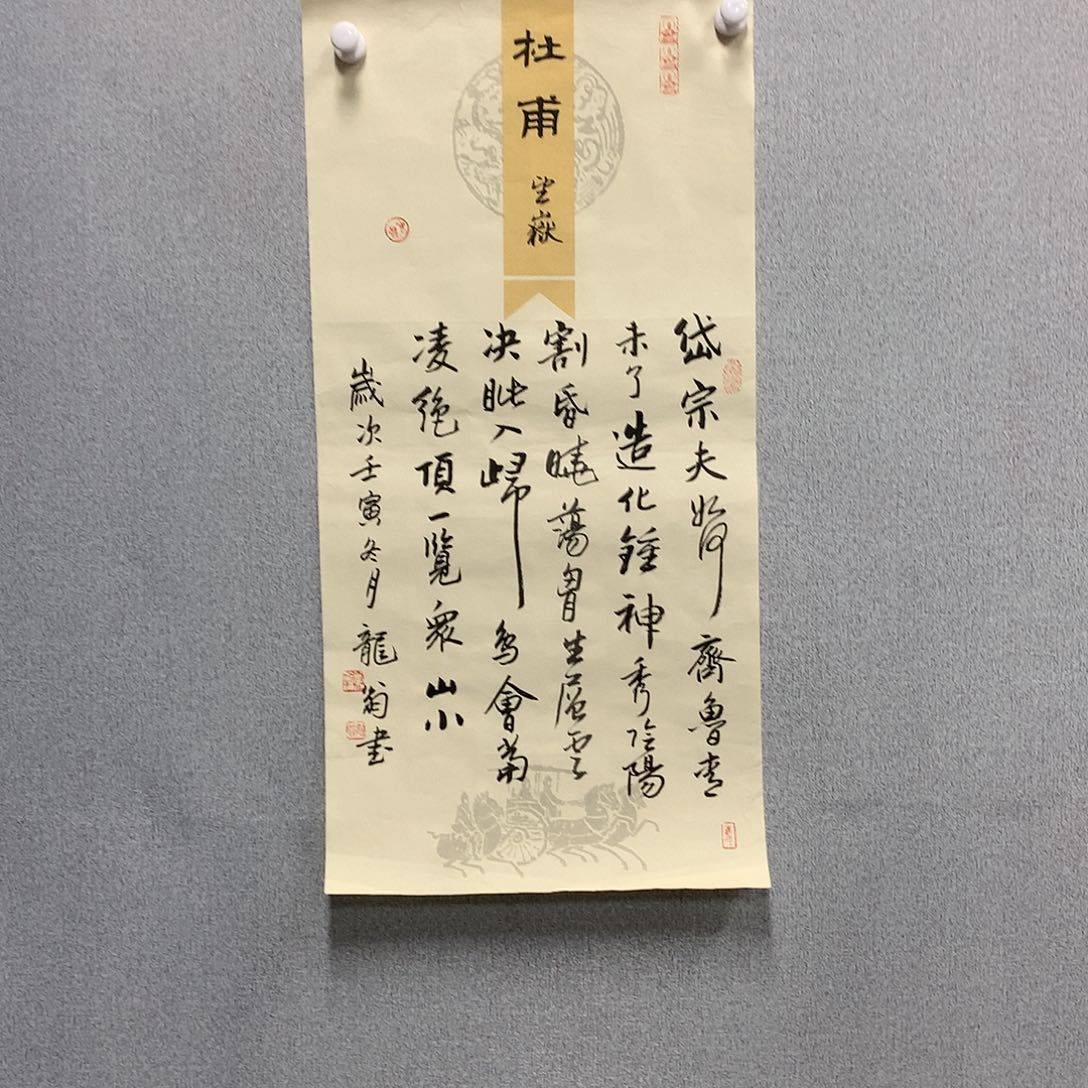 杜甫
望嶽
岱宗夫如何齊魯青
未了造化鍾神秀陰陽
割昏曉蕩胷生層雲
决眦入歸鳥會當
凌絕頂一覽衆山小
歲次壬寅冬月龍翁書